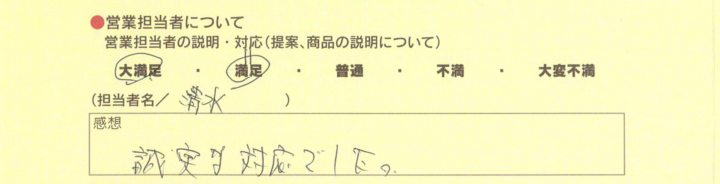 ●営業担当者について
営業担当者の説明・対応(提案、商品の説明について)
大満足 ・ 満足 ・ 普通 ・ 不満 ・ 大変不満
(担当者名/ 清水 )
感想
誠実な対応でした。